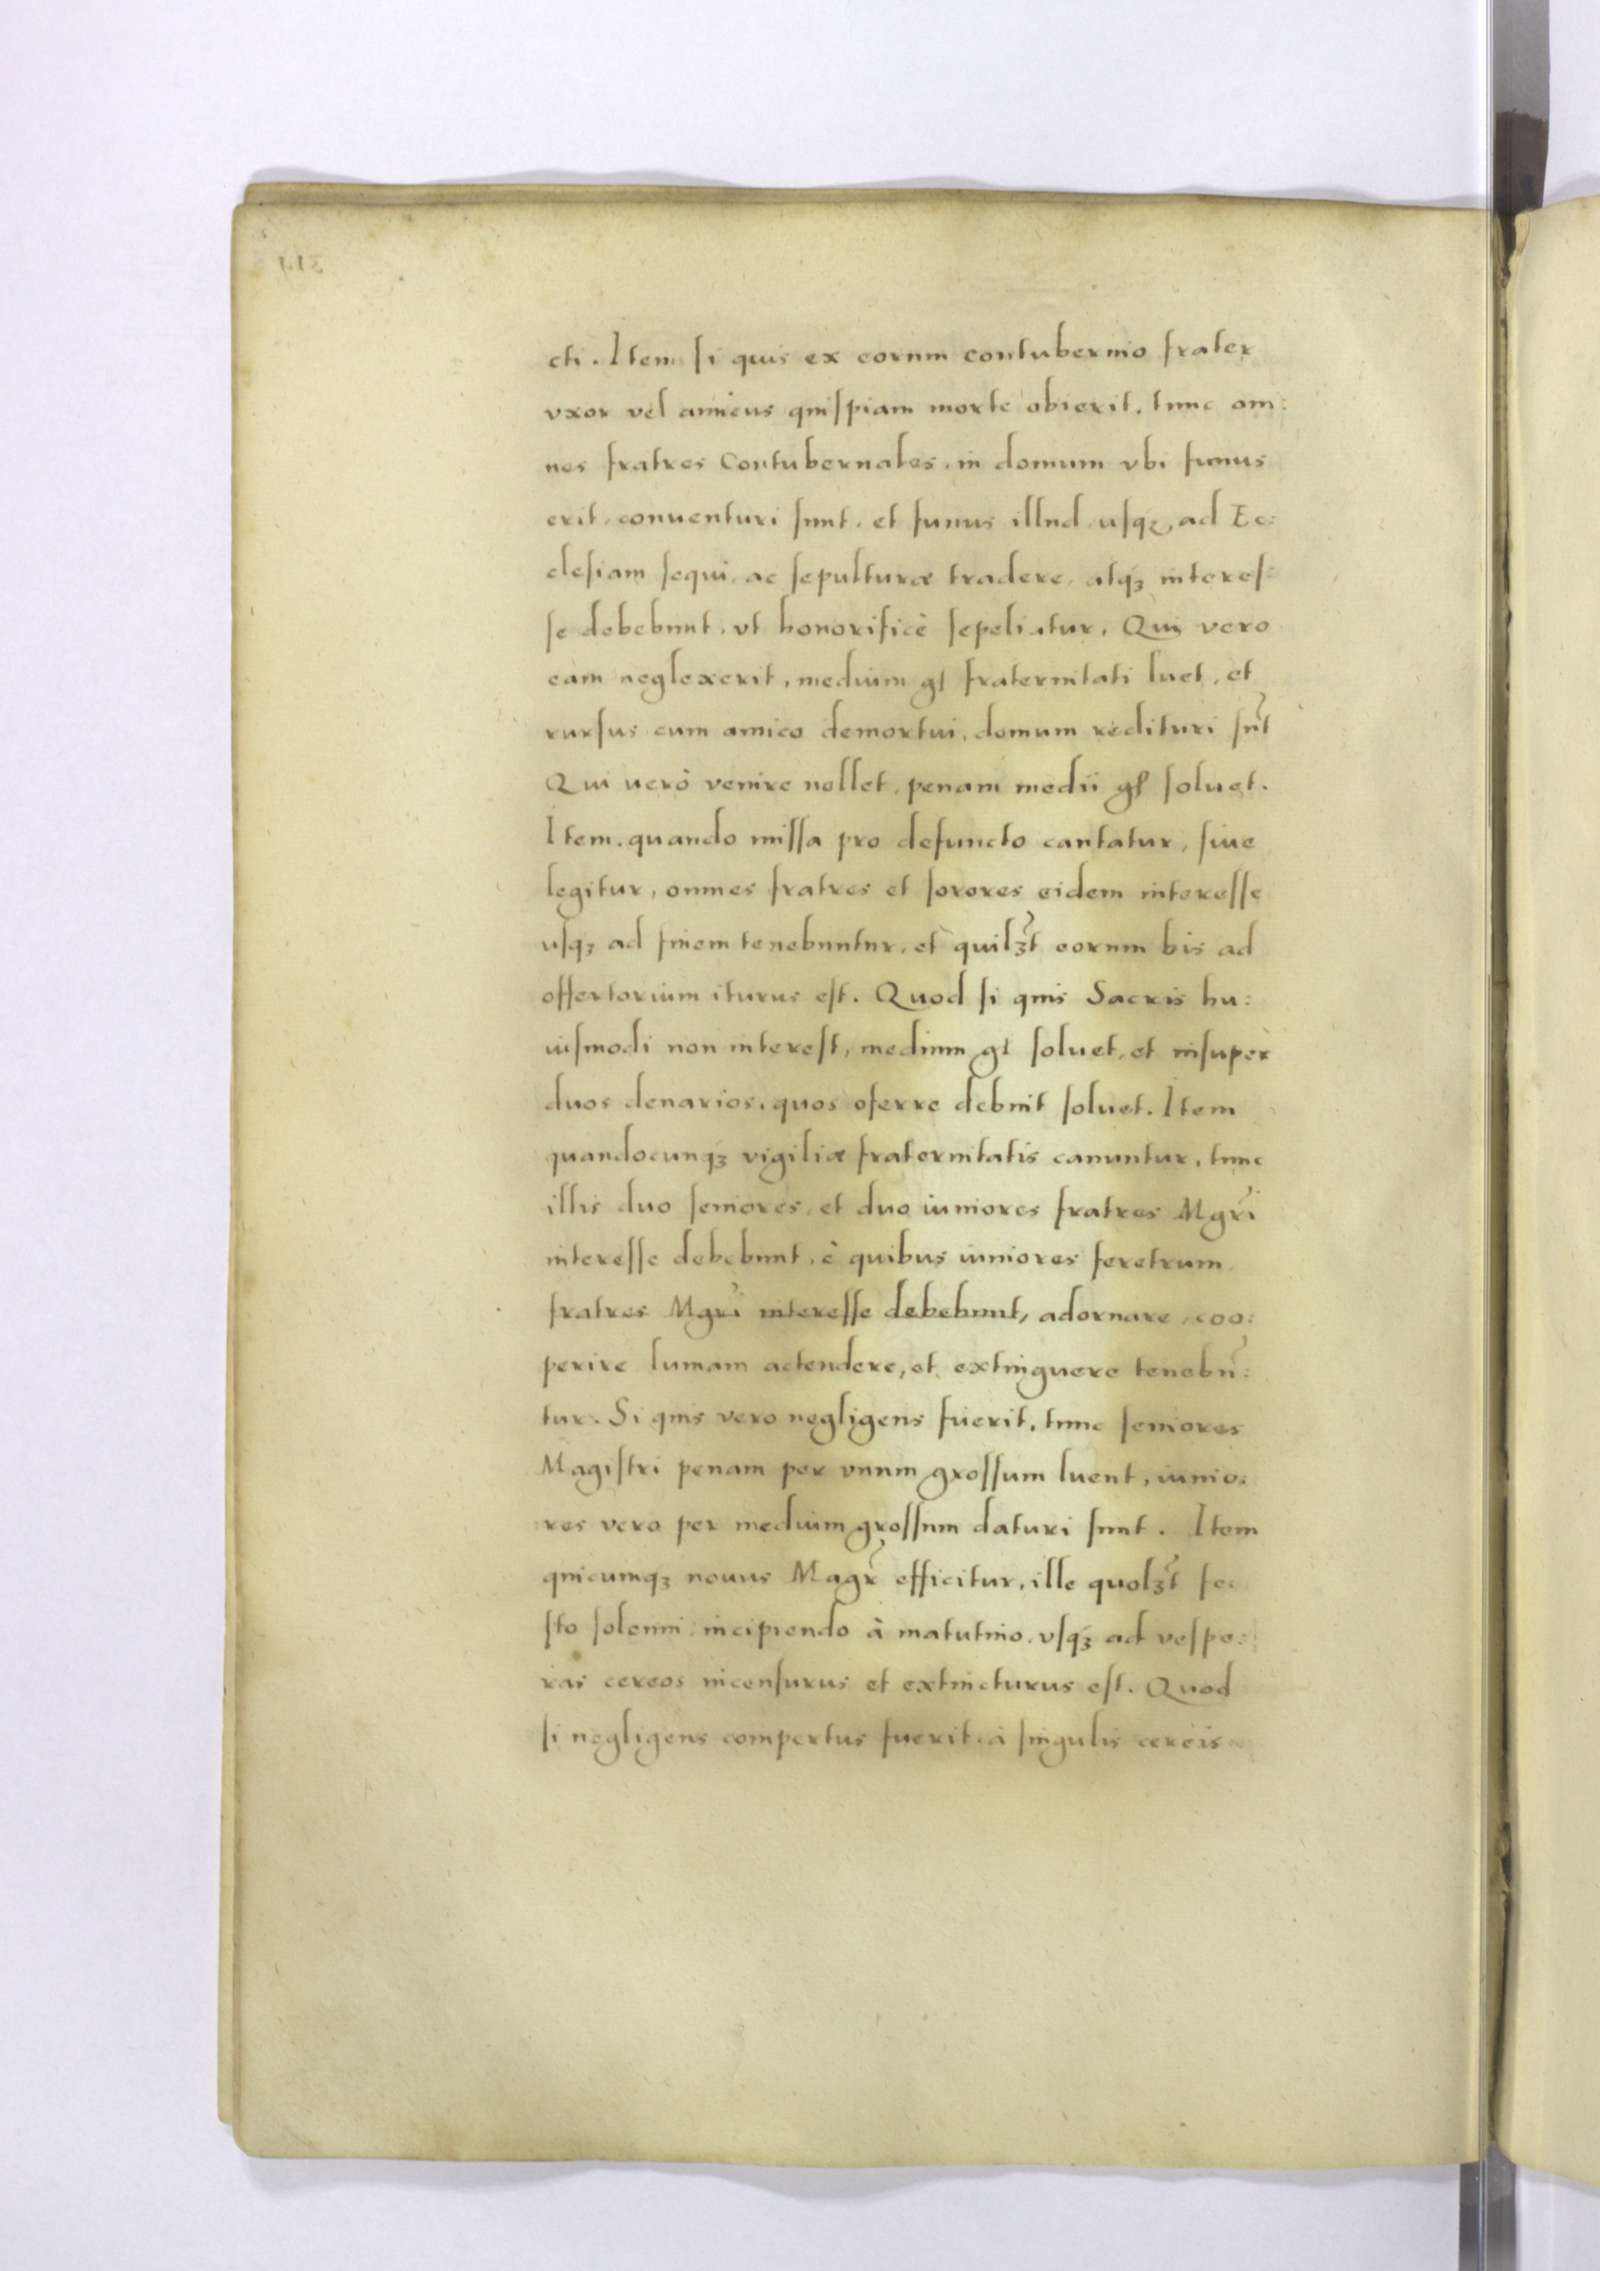 cti. Item si quis ex eorum contubernio frater
vxor vel amicus quispiam morte obierit, tunc om:
nes fratres Contubernales, in domum vbi funus
erit, conuenturi sunt, et funus illud, usq3, ad Ec:
clesiam sequi, ac sepulturæ tradere, atq3 interes:
se debebunt, vt honorificè sepeliatur. Qui vero
eam neglexerit, medium gl fraternitati luet, et
rursus cum amico demortui, domum redituri sn̄t
Qui uerò venire nollet, penam medii gl soluet.
Item. quando missa pro defuncto cantatur, siue
legitur, omnes fratres et sorores eidem interesse
usq3 ad finem tenebuntur, et quil3t eorum bis ad
offertorium iturus est. Quod si quis Sacris hu:
iusmodi non interest, medium gl soluet, et insuper
duos denarios, quos oferre debuit soluet. Item
quandocunq3 vigiliæ fraternitatis canuntur, tunc
illis duo seniores, et duo iuniores fratres Mgri
interesse debebunt, è quibus iuniores feretrum
fratres Mgri interesse debebunt, adornare, coo:
perire lumam actendere, et extinguere tenebn̄:
tur. Si quis vero negligens fuerit, tunc seniores
Magistri penam per vnum grossum luent, iunio:
res vero per medium grossum daturi sunt. Item
quicumq3 nouus Magr̄ efficitur, ille quol3t fe:
sto solenni incipiendo à matutino, vsq3 ad vespe:
ras cereos incensurus et extincturus est. Quod
si negligens compertus fuerit à singulis cereis